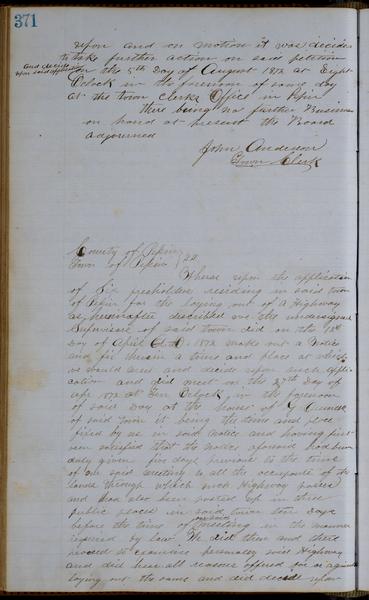 371
upon and on motion it was decided
to take further action on said petition
and decide
upon said application
on the 5th Day of August 1872 at Eight
Oclock in the forenoon of some day
at the town clerks Office in Pepin
there being no further Business
on hand at present the Board
adjourned
John Anderson
Town Clerk
County of Pepin
Town of Pepin } SS
Where upon the application
of Six freeholders residing in said town
of Pepin for the laying out of a Highway
as hereinafter described we the undersigned
Supervisors of said town did on the
Day of April A.D. 1872 make out a Notice
and fix therein a time and place at which
we would meet and decide upon such appli-
cation and did meet on the 27th Day of
1872 at Ten Oclock in the forenoon
of said Day at the house of
of said town it being the time and place
fixed by us in said notice and having first
been satisfied that the notice aforesaid had been
duly given five days previous to the time
of our said meeting to all the occupants of the
lands through which such Highway passes
and had also been posted up in three
public places in said town ten days
before the time of our said meeting in the manner
required by law We did then and there
proceed to examine personally said Highway
and did hear all reasons offered for or against
laying out the same and did decide upon